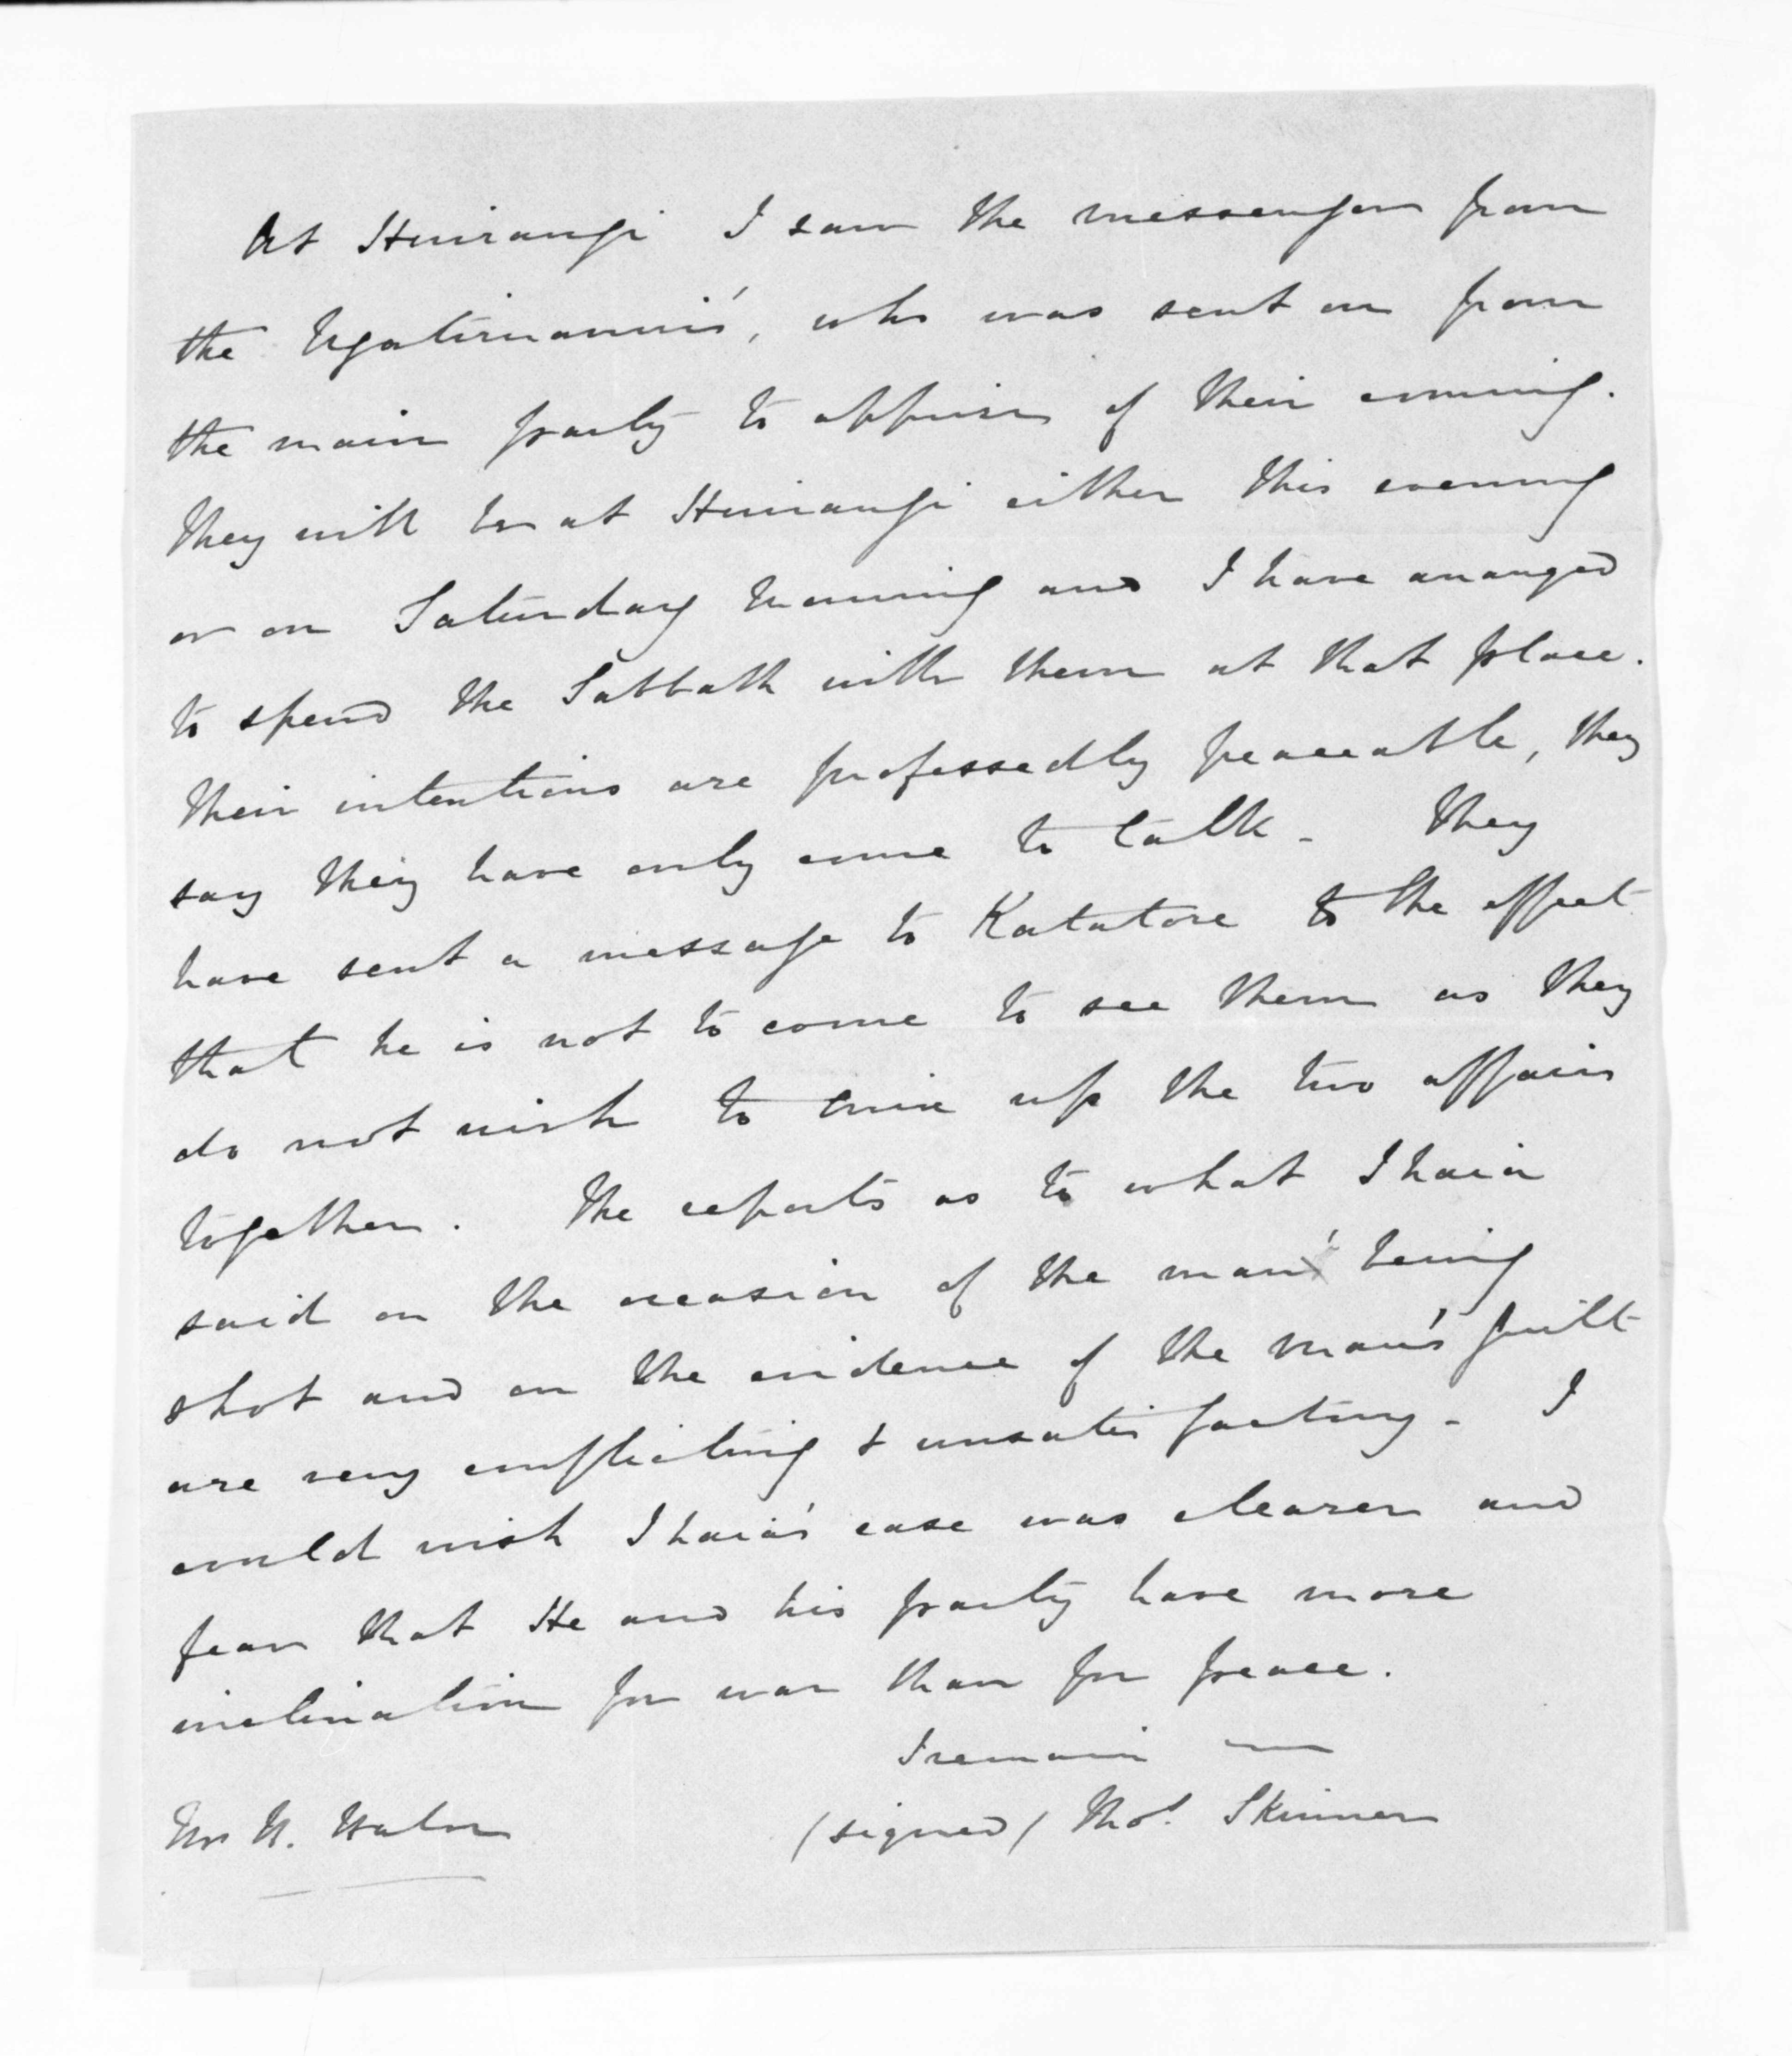 At Huirangi I saw the messenger from
the Ngatimaniu's, who was sent on from
the main party to apprise of their coming.
They will be at Huirangi either this evening
or on Saturday morning and I have arranged
to spend the Sabbath with them at that place.
Their intentions are professedly peaceable, they
say they have only come to talk - They
have sent a message to Katatore to the effect
that he is not to come to see them as they
do not wish to mix up the two affairs
together. The reports as to what Ihaia
said on the occasion of the man's being
shot and on the evidence of the man's guilt
are very conflicting & unsatisfactory - I
could wish Ihaia's case was clearer and
fear that He and his party have more
inclination for war than for peace.
I remain
(signed) Thos. Skinner
Mr H. Halse